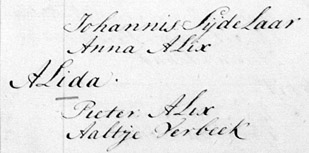 Johannis Sÿdelaar
Anna Alix
Alida.
Pieter Alix
Aaltje Verbeek